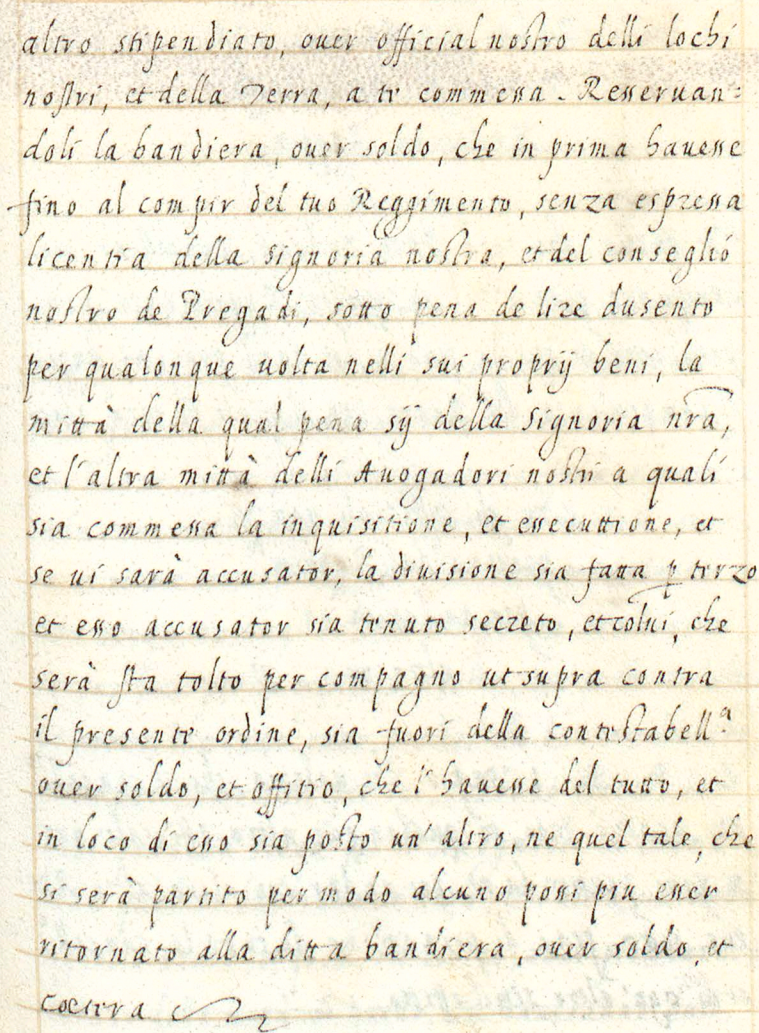 altro stipendiato, ouer official nostro delli lochi
nostri, et della Terra, a te commessa. Resseruan=
doli la bandiera, ouer soldo, che in prima hauesse
fino al compir del tuo Reggimento, senza espressa
licentia della signoria nostra, et del conseglio
nostro de Pregadi, sotto pena de lire dusento
per qualonque uolta nelli sui proprij beni, la
mittà della qual pena sij della signoria nrã,
et l'altra mittà delli Auogadori nostri a quali
sia commessa la inquisitione, et essecuttione, et
se ui sarà accusator, la diuisione sia fatta ꝑ terzo
et esso accusator sia tenuto secreto, et colui, che
serà sta tolto per compagno ut supra contra
il presente ordine, sia fuori della contestabell.ª
ouer soldo, et offitio, che l'hauesse del tutto, et
in loco di esso sia posto un' altro, ne quel tale, che
si serà partito per modo alcuno possi piu esser
ritornato alla ditta bandiera, ouer soldo, et
coetera